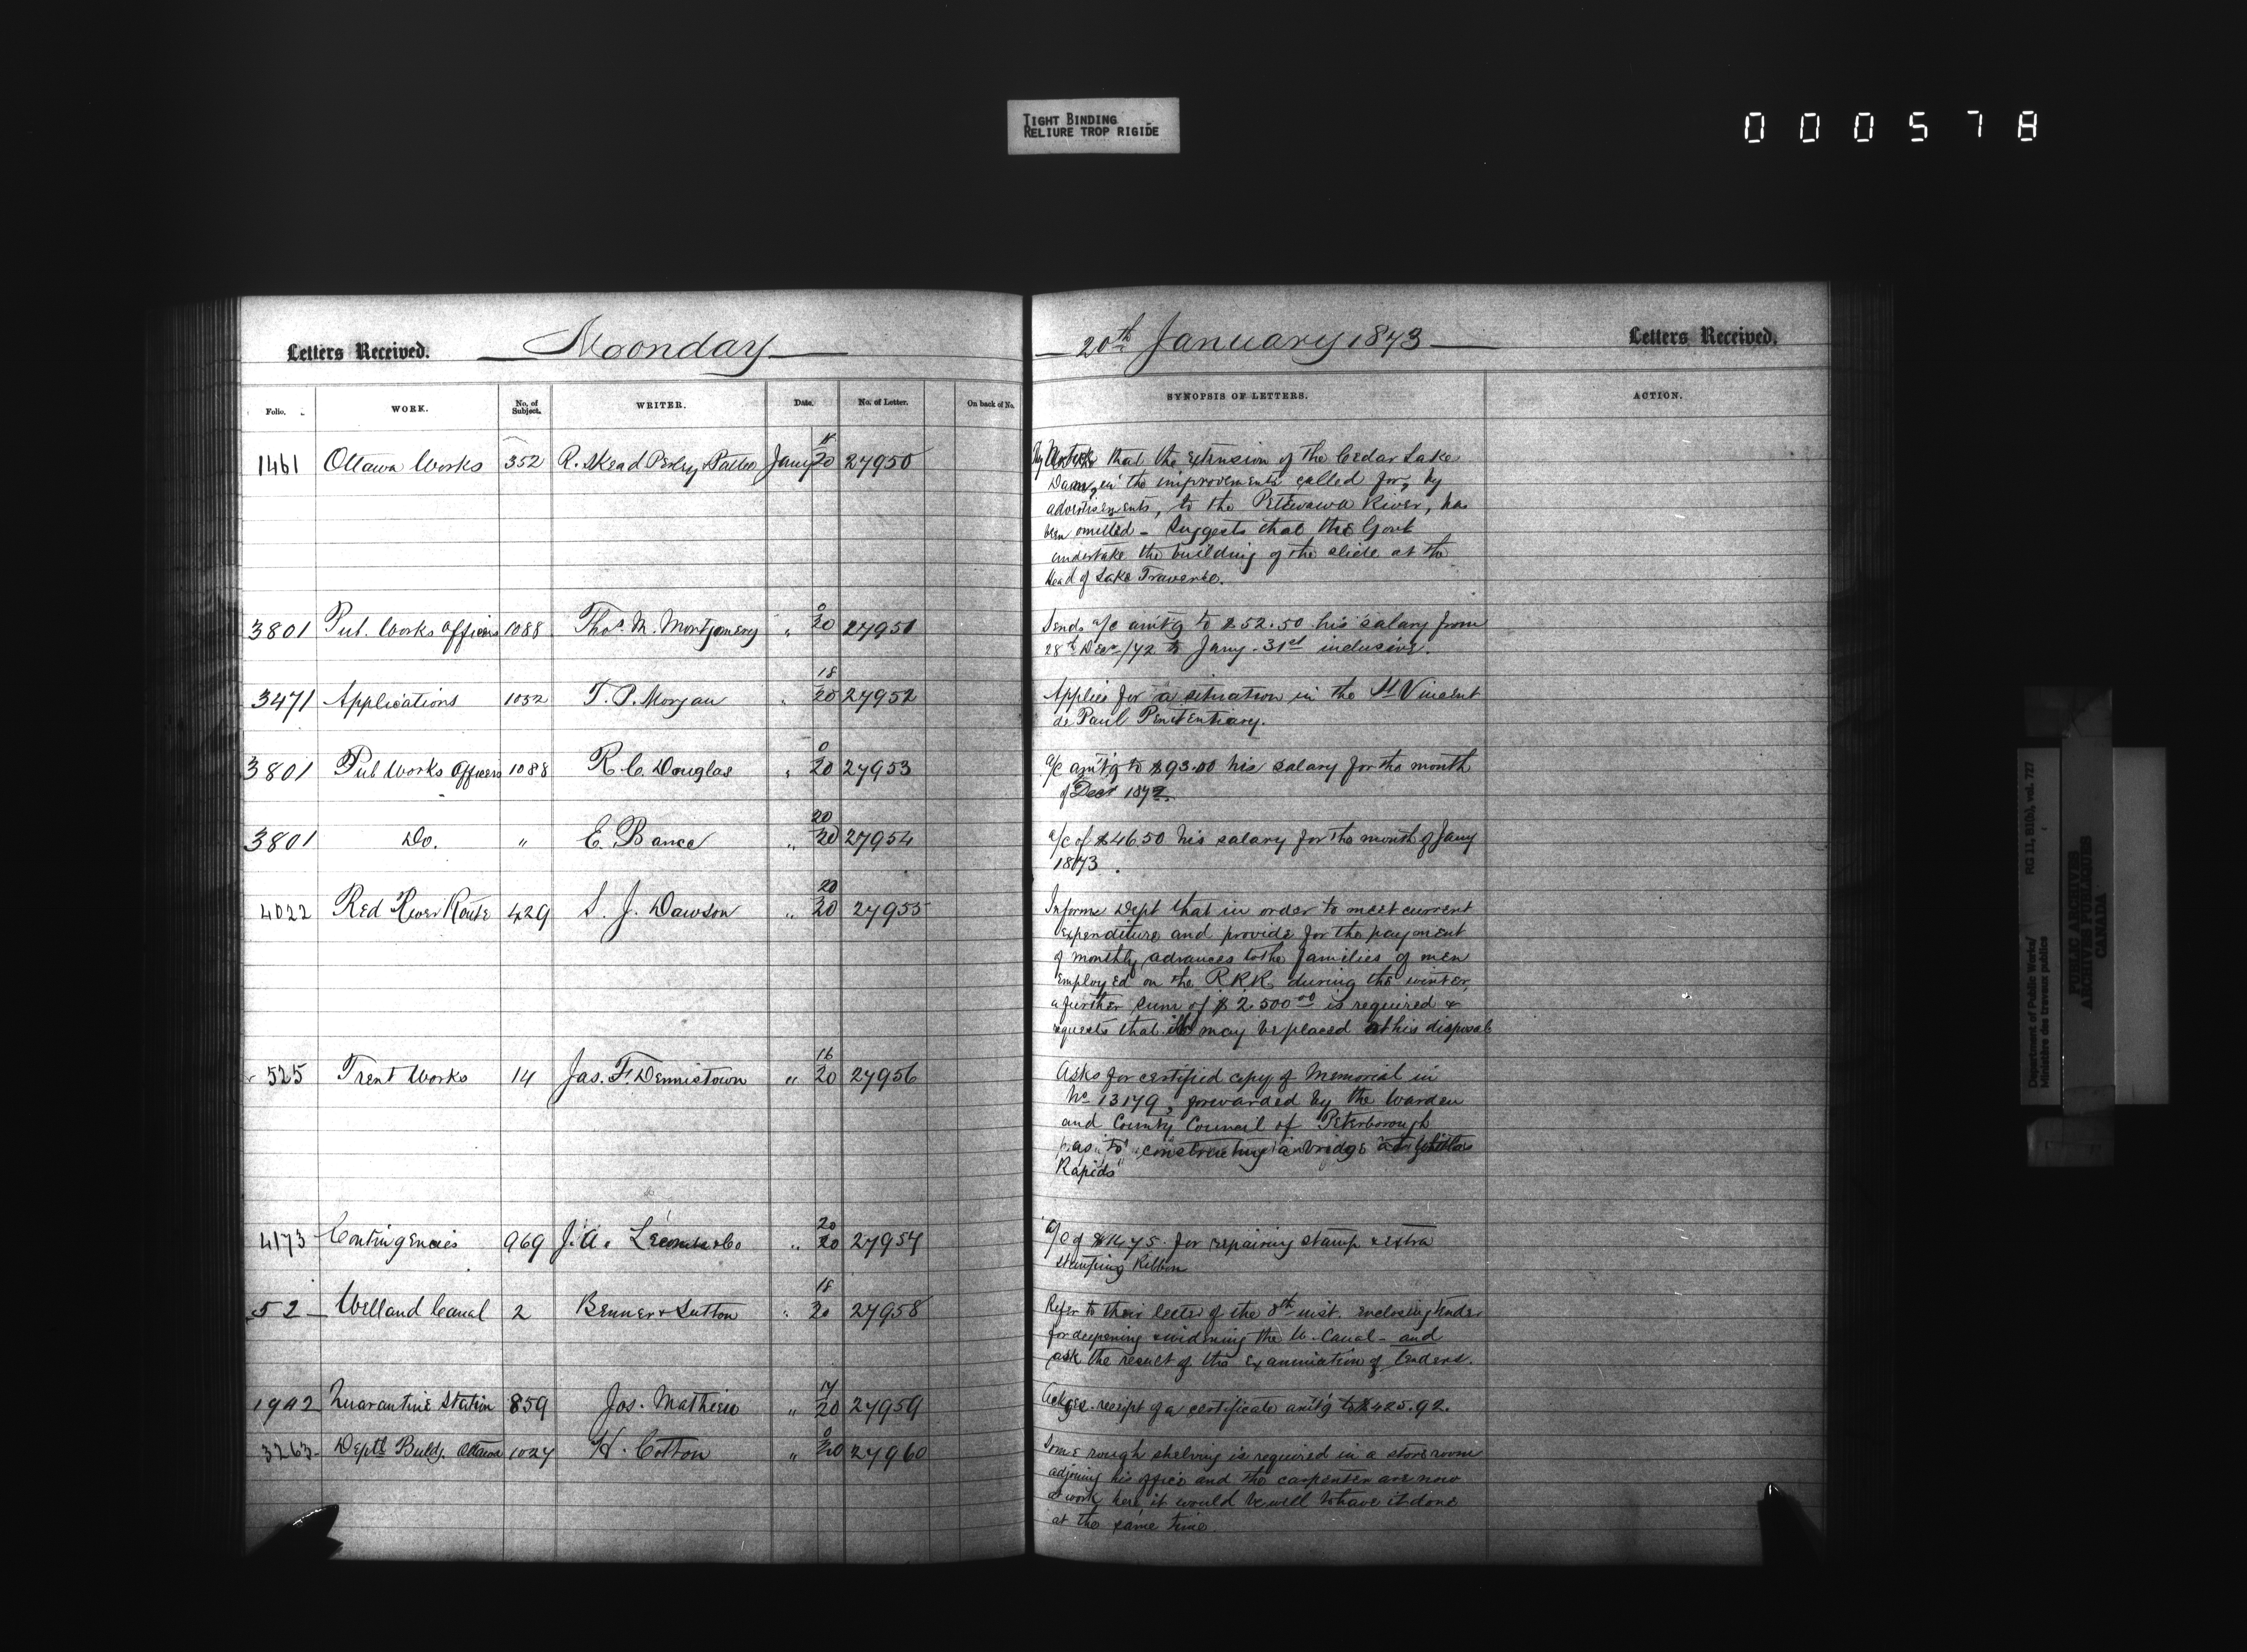 TIGHT BINDING
RELIURE TROP RIGIDE
000578
Letters Received. Moonday
20th January 1873 Letters Received.
Folio. WORK. No. of Subject. WRITER. Date. No. of Letter. On back of No. SYNOPSIS OF LETTERS. ACTION.
1461 Ottawa Works 352 R. Skead Perley & Pattee Jany 18/20 27950
that the extension of the Cedar Lake
Dam, in the improvements called for, by
advertisements, to the Pettewawa River, has
been omitted - Suggests that the Govt
undertake the building of the slide at the
Head of Lake Traverse.
3801 Pub. Works Officers 1088 Thos. M. Montgomery " 0/20 27951
Sends a/c amt'g to $52.50 his salary from
28th Decr /72 to Jany. 31st inclusive.
3471 Applications 1032 T. P. Morgan " 18/20 27952
Applies for a situation in the St Vincent
de Paul Penitentiary.
3801 Pub Works Officers 1088 R. C. Douglas " 0/20 27953
a/c amt'g to $93.00 his salary for the month
of Decr 1872.
3801 Do. " E. Bance " 20/20 27954
a/c of $46.50 his salary for the month of Jany
1873.
4022 Red River Route 429 S. J. Dawson " 20/20 27955
Informs Dept that in order to meet current
expenditure and provide for the payment
of monthly advances to the families of men
employed on the R.R.R. during the winter,
a further sum of $2500 00 is required &
requests that it may be placed at his disposal
525 Trent Works 14 Jas. F. Dennistown " 16/20 27956
Asks for certified copy of Memorial in
No 13179, forwarded by the Warden
and County Council of Peterborough
as to "constructing a bridge at
Rapids"
4173 Contingencies 969 J. A. & Co " 20/20 27957
a/c of for repairing stamp & extra
stamping Ribbon
52 Welland Canal 2 Benner & Sutton " 18/20 27958
Refer to their letter of the 8th inst. enclosing tender
for deepening & widening the W. Canal - and
ask the result of the examination of tenders.
1942 Quarantine Station 859 Jos. Mathieu " 17/20 27959
Ackges. receipt of a certificate amt'g to $425.92.
3263 Deptl Buldg. Ottawa 1027 H. Cotton " 0/20 27960
Some rough shelving is required in a store room
adjoining his office and the carpenters are now
at work here, it would be well to have it done
at the same time
Department of Public Works/ RG 11, B1(b), vol. 727
Ministère des travaux publics
PUBLIC ARCHIVES
ARCHIVES PUBLIQUES
CANADA